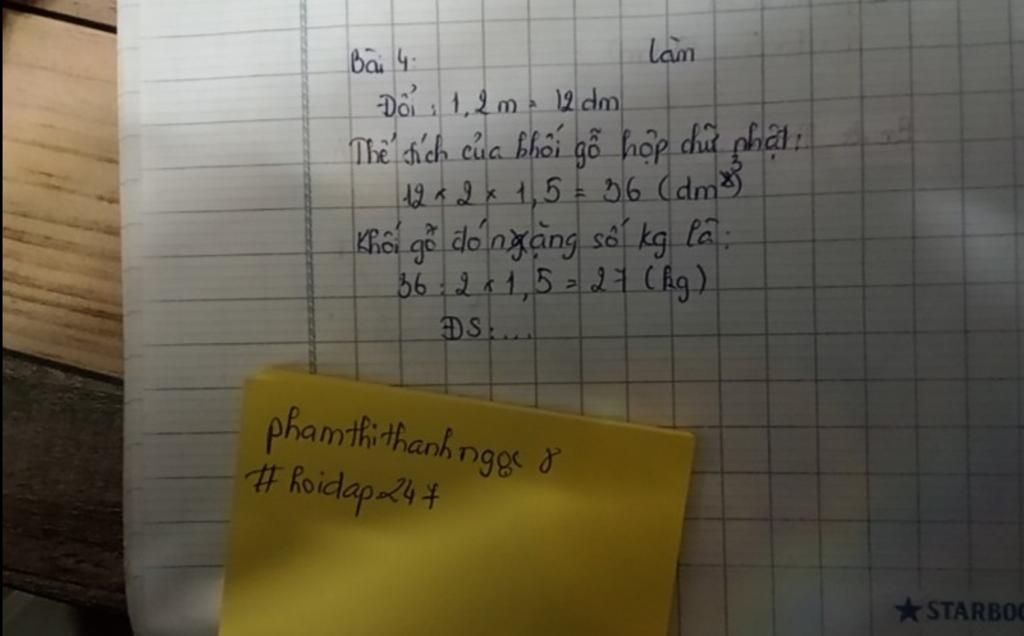 Bài 4: làm
Đổi: 1,2m = 12dm
Thể tích của khối gỗ hộp chữ nhật:
12 x 2 x 1,5 = 36 (dm³)
Khối gỗ đó nặng số kg là:
36 : 2 x 1,5 = 27 (kg)
ĐS:...
phamthithanhngọc 8
#hoidap247
★STARBOO